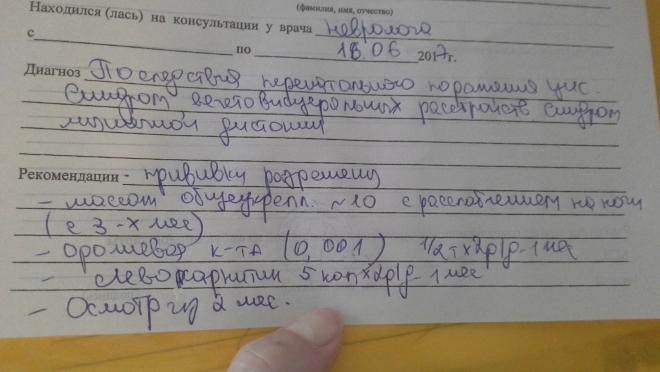 (фамилия, имя, отчество)
Находился (лась) на консультации у врача невролога
с по 16.06 2017г.
Диагноз Последствия перинатального поражения цнс.
Синдром вегетовисцеральных расстройств синдром
мышечной дистонии
Рекомендации - прививки разрешены
- массаж общеукрепл. ~10 с расслаблением на ноги
(с 3-х мес)
- оротовая к-та (0,001) 1/2т х 2р/д - 1 мес
- левокарнитин 5 кап х 2р/д - 1 мес
- Осмотр чз 2 мес.